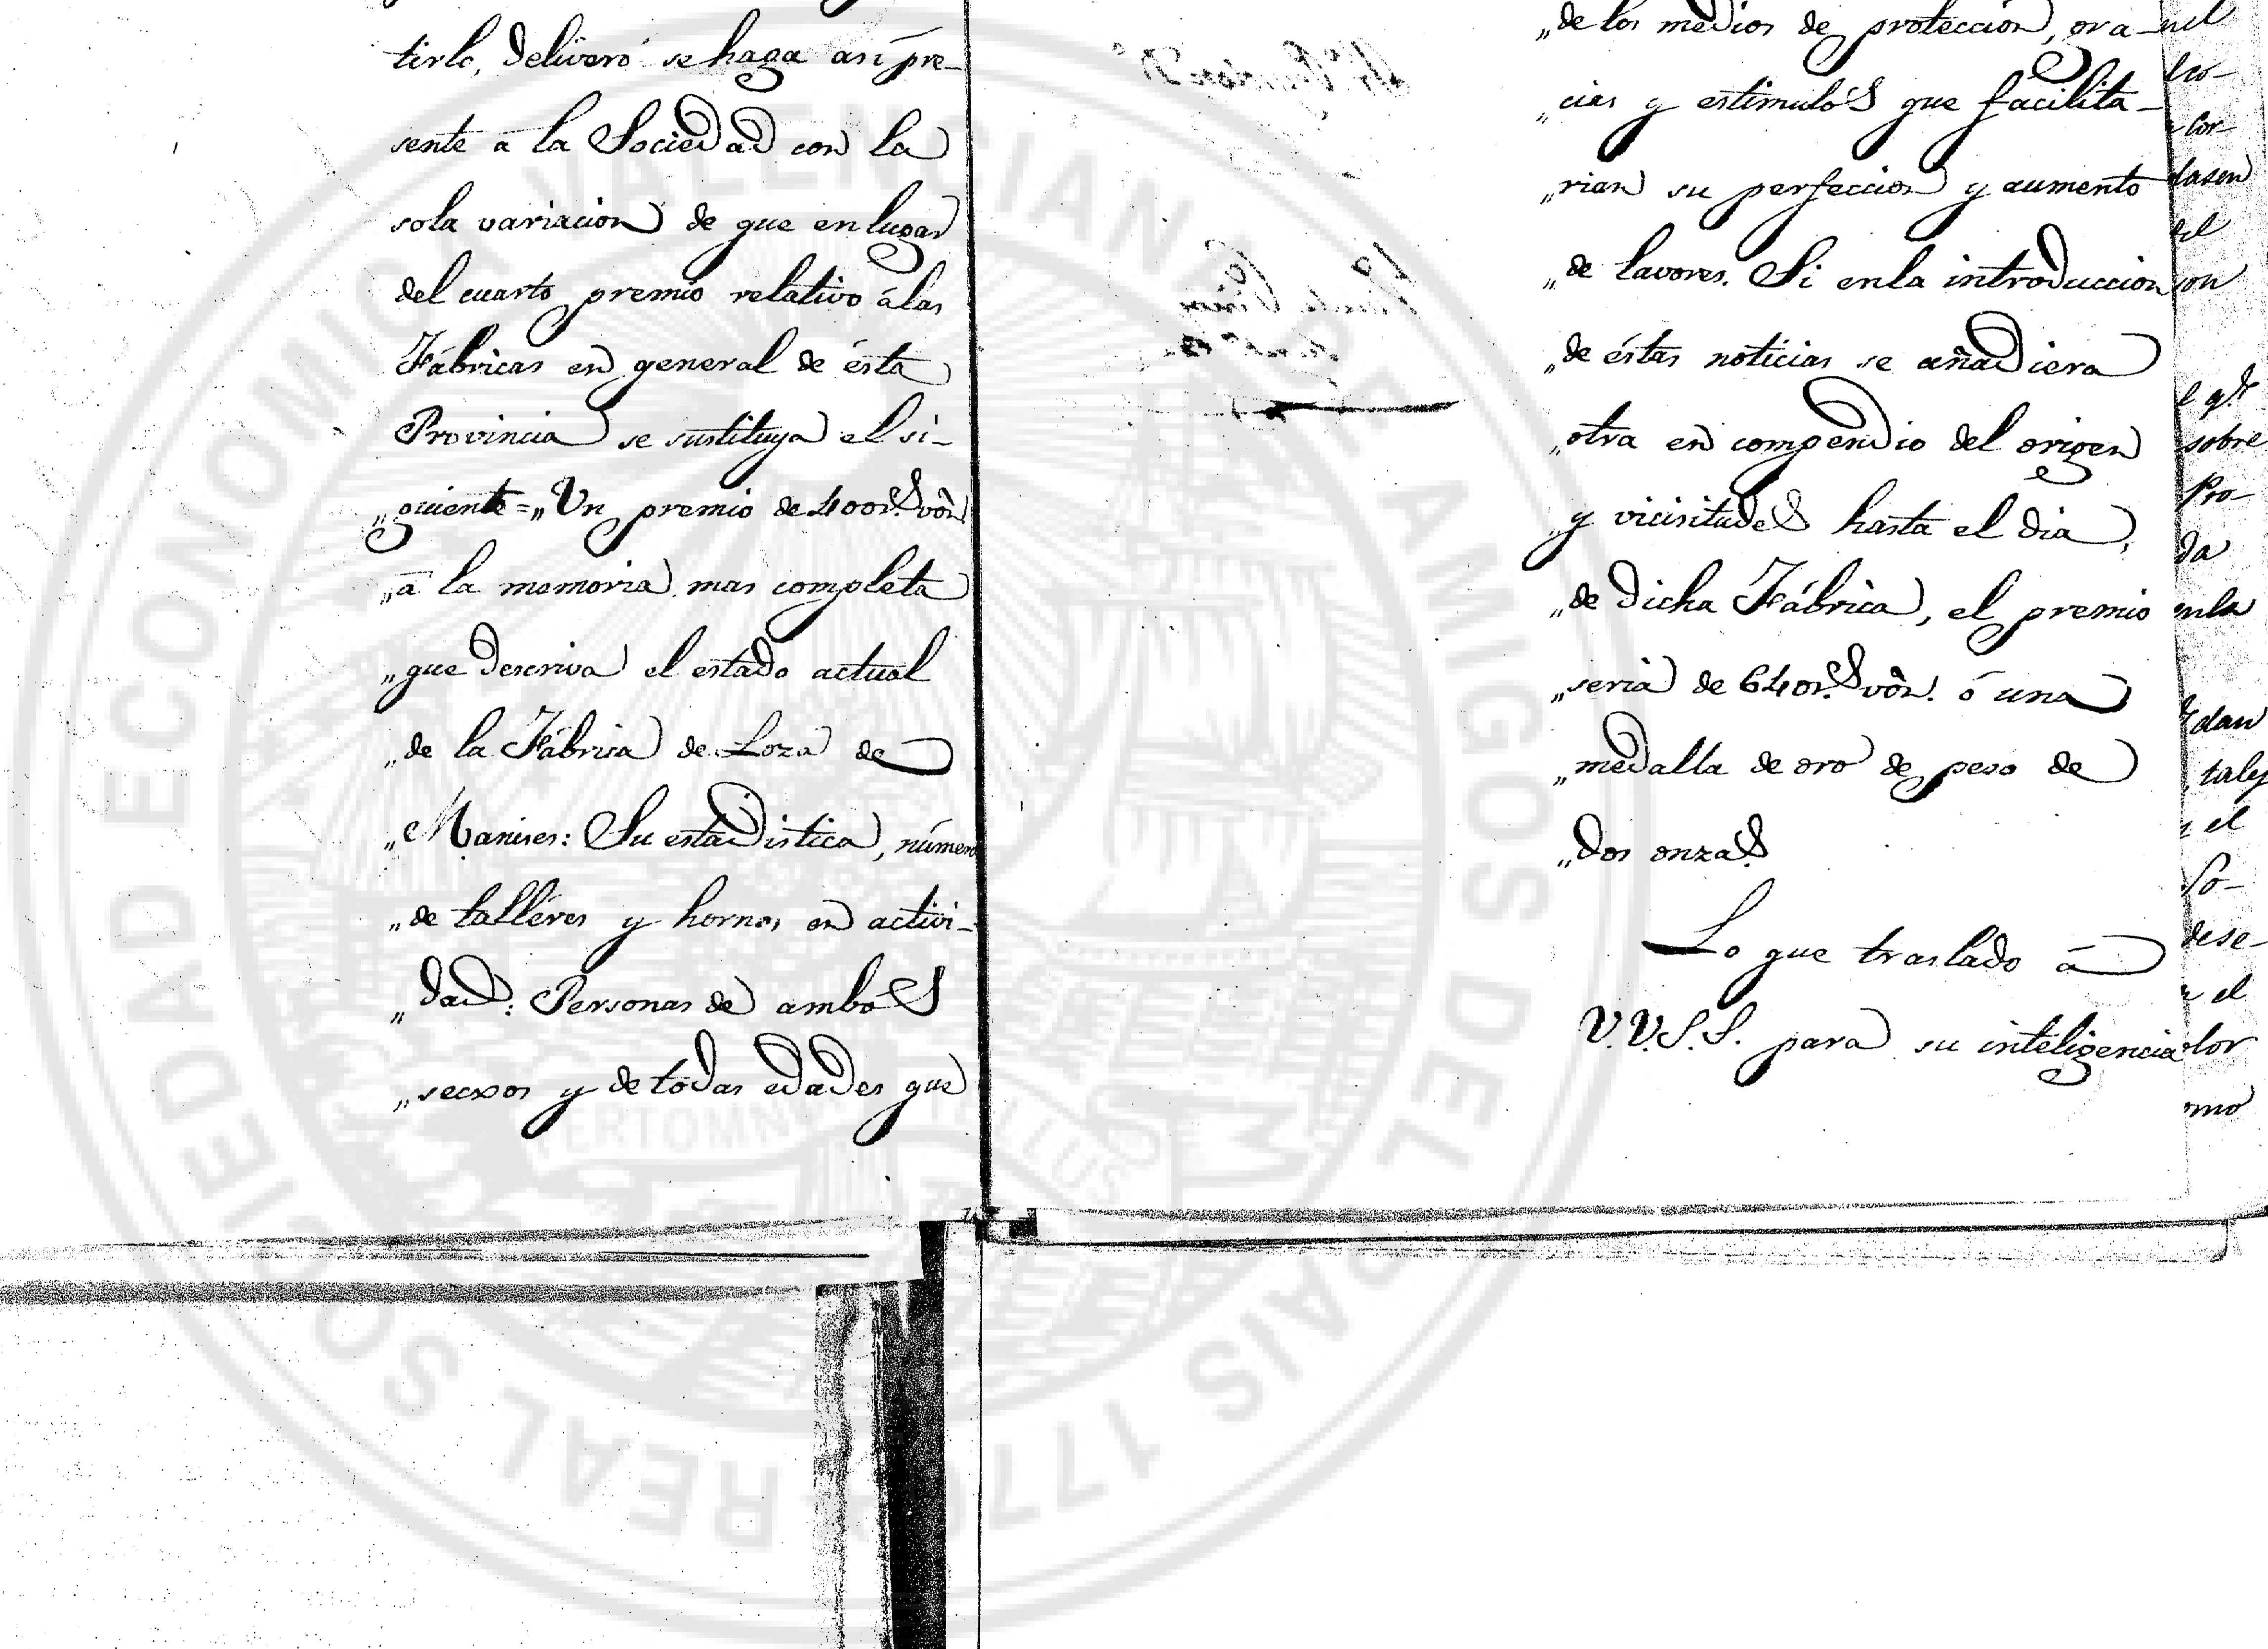 tirlo, deliveró se haga así pre-
sente á la Sociedad con la
sola variacion de que en lugar
del cuarto premio relativo á las
Fábricas en general de ésta
Provincia se sustituya el si-
„guiente = „Un premio de 400 r.s vón.
„á la memoria mas completa
„que descriva el estado actual
„de la Fábrica de Loza de
„Manises: Su estadistica, número
„de talléres y hornos en activi-
„dad: Personas de ambos
„secxos y de todas edades que
„de los medios de protección, gra-
„cias y estimulos que facilita-
„rian su perfeccion y aumento
„de lavores. Si en la introduccion
„de éstas noticias se añadiera
„otra en compendio del origen
„y vicisitudes hasta el dia,
„de dicha Fábrica, el premio
„seria de 640 r.s vón. ó una
„medalla de oro de peso de
„dos onzas.
Lo que traslado á
V.V.S.S. para su inteligencia
sobre
Pro-
da
en la
dan
tales
el
So-
dese-
el
lor
omo
REAL SOCIEDAD ECONOMICA VALENCIANA AMIGOS DEL PAIS 177